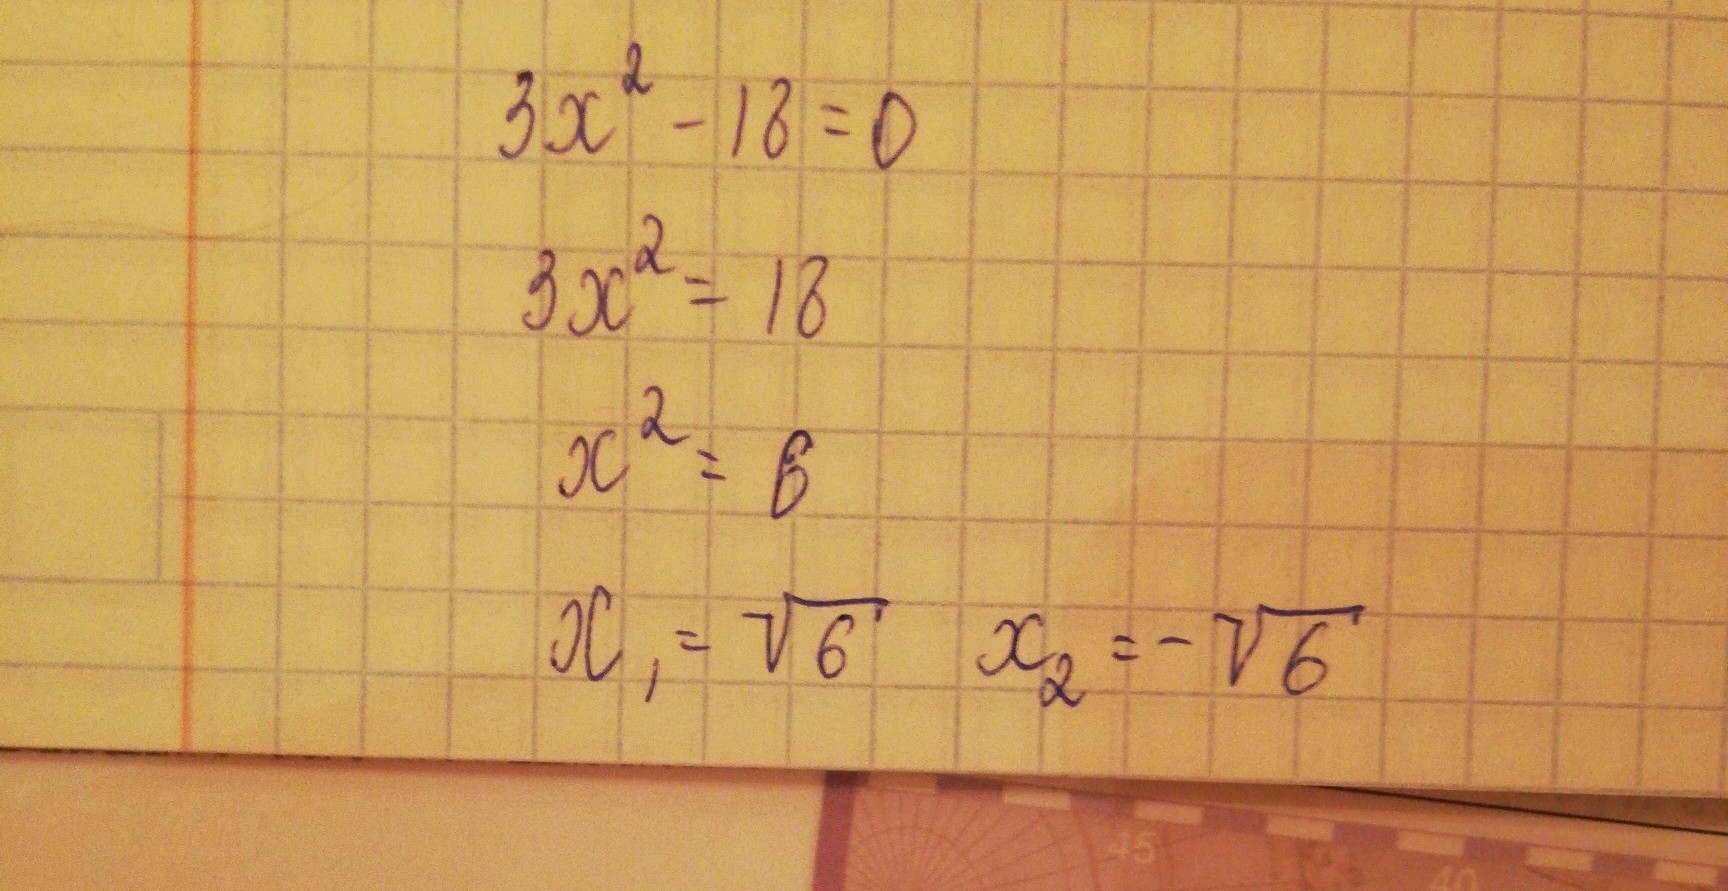 3x² - 18 = 0
3x² = 18
x² = 6
x₁ = √6 x₂ = -√6
45
40